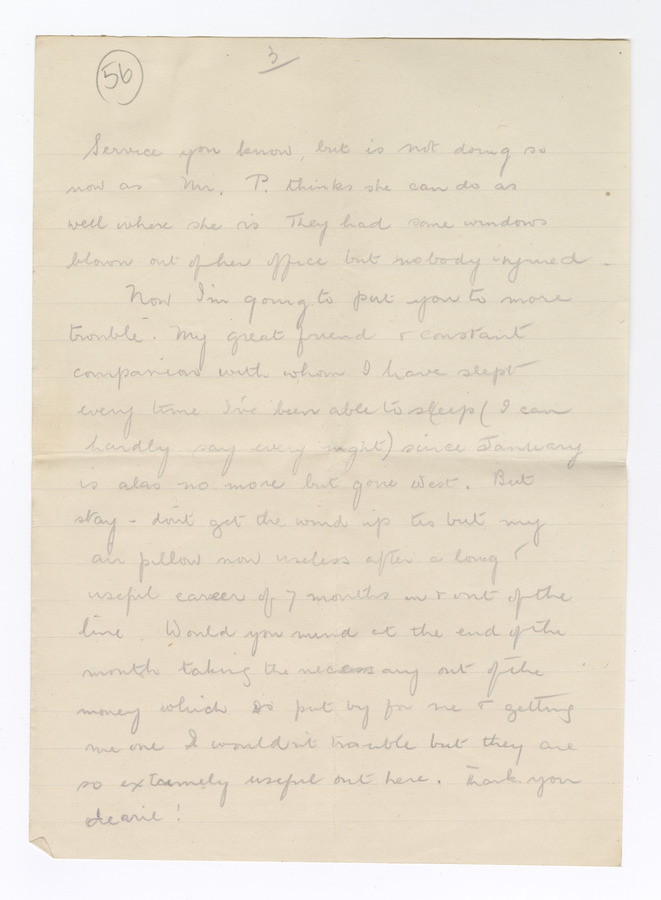 56
3
Service you know, but is not doing so
now as Mr. P. thinks she can do as
well where she is They had some windows
blown out of her office but nobody injured -
Now I'm going to put you to more
trouble. My great friend & constant
companion with whom I have slept
every time I've been able to sleep (I can
hardly say every night) since January
is alas no more but gone West. But
stay - don't get the wind up tis but my
air pillow now useless after a long &
useful career of 7 months in & out of the
line. Would you mind at the end of the
month taking the necessary out of the
money which is put by for me & getting
me one I wouldn't trouble but they are
so extremely useful out here. Thank you
dearie!